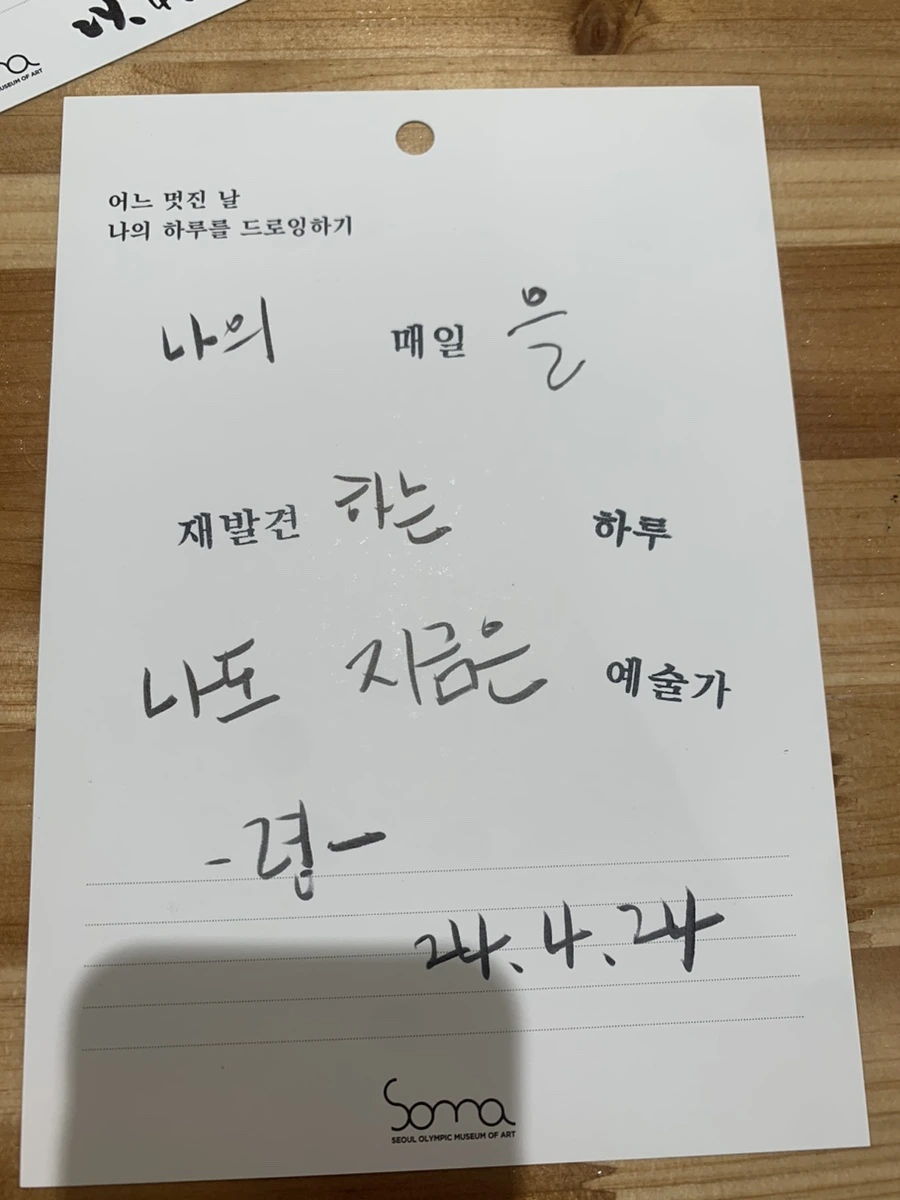 어느 멋진 날
나의 하루를 드로잉하기
나의 매일 을
재발견 하는 하루
나도 지금은 예술가
-령-
24.4.24
Soma
SEOUL OLYMPIC MUSEUM OF ART
MUSEUM OF ART